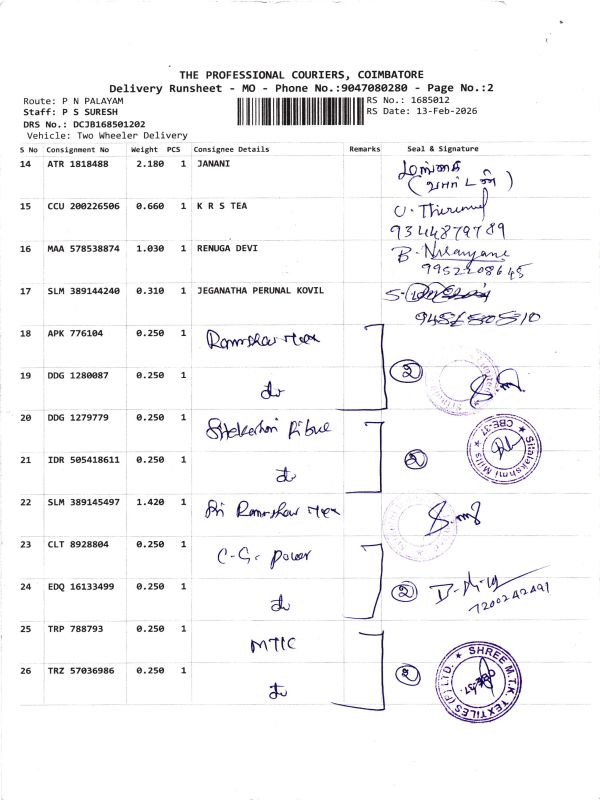 THE PROFESSIONAL COURIERS, COIMBATORE
Delivery Runsheet - MO - Phone No.:9047080280 - Page No.:2
Route: P N PALAYAM
RS No.: 1685012
Staff: P S SURESH
RS Date: 13-Feb-2026
DRS No.: DCJB168501202
Vehicle: Two Wheeler Delivery
S No Consignment No Weight PCS Consignee Details Remarks Seal & Signature
14 ATR 1818488 2.180 1 JANANI
15 CCU 200226506 0.660 1 K R S TEA
9344879789
16 MAA 578538874 1.030 1 RENUGA DEVI B.
9952208645
17 SLM 389144240 0.310 1 JEGANATHA PERUNAL KOVIL
18 APK 776104 0.250 1
2
19 DDG 1280087 0.250 1
20 DDG 1279779 0.250 1
Sitalakshmi Mills CBE-37
21 IDR 505418611 0.250 1
2
22 SLM 389145497 1.420 1
23 CLT 8928804 0.250 1 C-G- Power
24 EDQ 16133499 0.250 1
2
7200242491
25 TRP 788793 0.250 1
26 TRZ 57036986 0.250 1
2
SHREE M.T.K. TEXTILES (P) LTD. CBE-37.